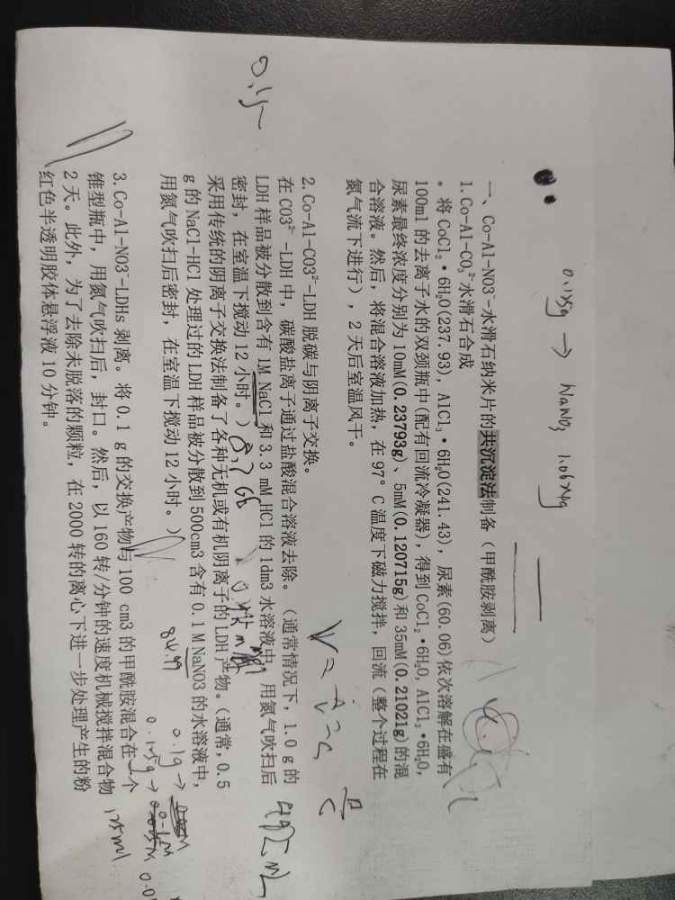 0.125g → NaNO₃ 1.0624g
一、Co-Al-NO3⁻水滑石纳米片的共沉淀法制备（甲酰胺剥离）
1. Co-Al-CO₃²⁻水滑石合成
。将 CoCl₂•6H₂O(237.93), AlCl₃•6H₂O(241.43), 尿素(60.06)依次溶解在盛有
100ml 的去离子水的双颈瓶中(配有回流冷凝器)，得到 CoCl₂•6H₂O, AlCl₃•6H₂O,
尿素最终浓度分别为 10mM(0.23793g)、5mM(0.120715g)和 35mM(0.21021g)的混
合溶液。然后，将混合溶液加热，在 97° C 温度下磁力搅拌，回流（整个过程在
氮气流下进行），2 天后室温风干。
2. Co-Al-CO3²⁻-LDH 脱碳与阴离子交换。
在 CO3²⁻-LDH 中，碳酸盐离子通过盐酸混合溶液去除。（通常情况下，1.0 g 的
LDH 样品被分散到含有 1M NaCl 和 3.3 mM HCl 的 1dm3 水溶液中，用氮气吹扫后
密封，在室温下搅动 12 小时。）
采用传统的阴离子交换法制备了各种无机或有机阴离子的 LDH 产物。(通常, 0.5
g 的 NaCl-HCl 处理过的 LDH 样品被分散到 500cm3 含有 0.1 M NaNO3 的水溶液中，
用氮气吹扫后密封，在室温下搅动 12 小时。）
84.99
0.1g →
0.125g →
3. Co-Al-NO3⁻-LDHs 剥离。将 0.1 g 的交换产物与 100 cm3 的甲酰胺混合在一个
锥型瓶中，用氮气吹扫后，封口。然后，以 160 转/分钟的速度机械搅拌混合物
125ml
2 天。此外，为了去除未脱落的颗粒，在 2000 转的离心下进一步处理产生的粉
红色半透明胶体悬浮液 10 分钟。